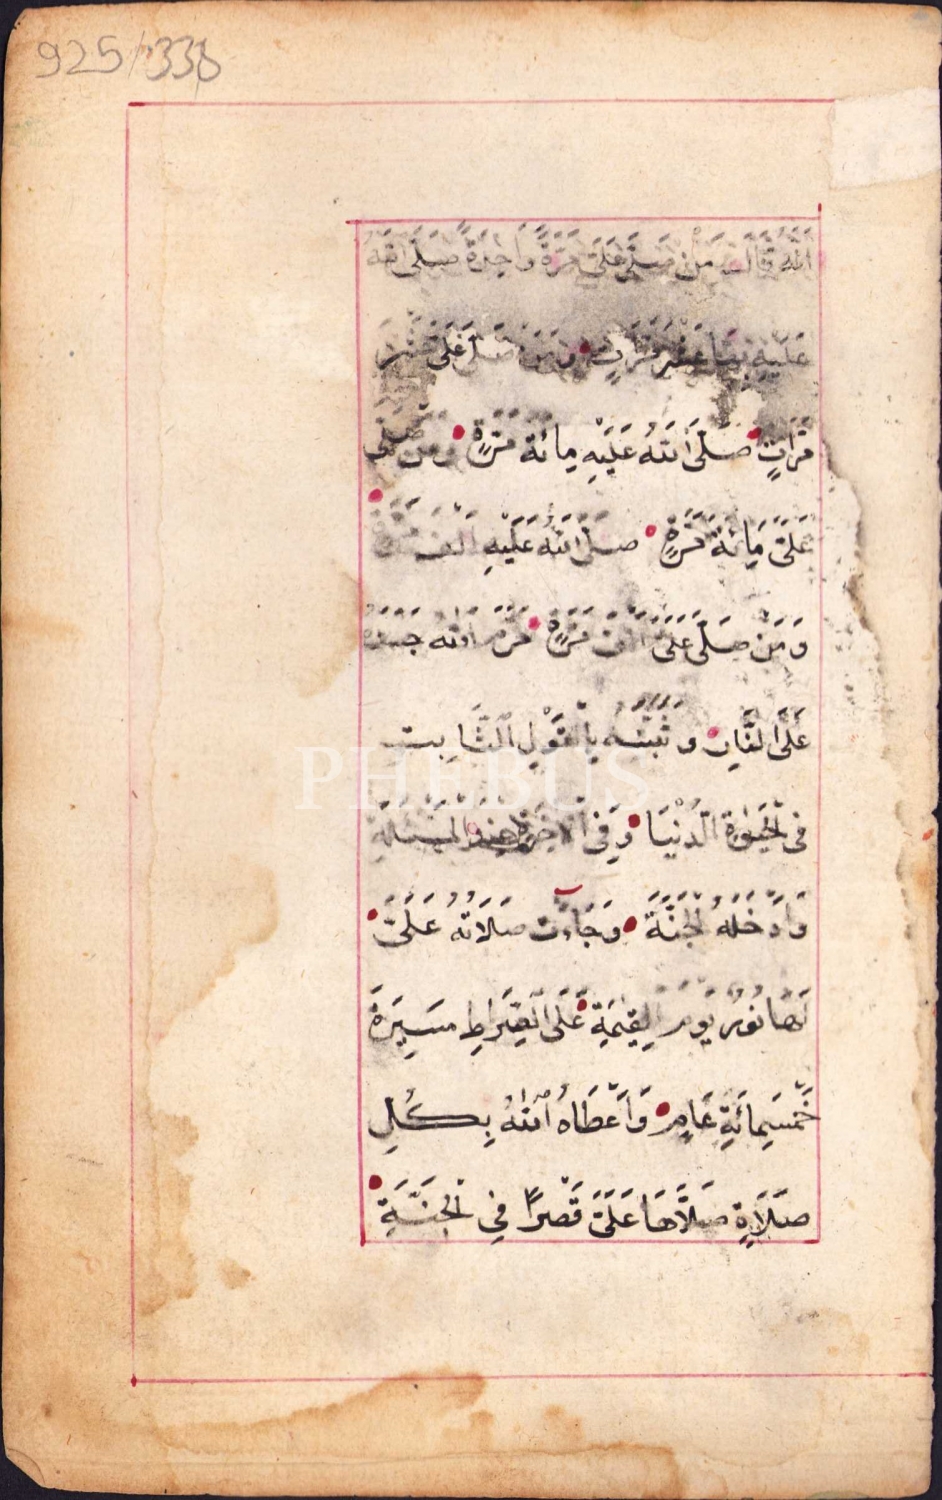 925/338
الله قَالَ مَنْ صَلَّى عَلَىَّ مَرَّةً وَاحِدَةً صَلَّى اللهُ
عَلَيْهِ بِهَا عَشْرَ مَرَّاتٍ وَمَنْ صَلَّى عَلَىَّ عَشْرَ
مَرَّاتٍ صَلَّى اللهُ عَلَيْهِ مِائَةَ مَرَّةٍ وَمَنْ صَلَّى
عَلَىَّ مِائَةَ مَرَّةٍ صَلَّى اللهُ عَلَيْهِ اَلْفَ
وَمَنْ صَلَّى عَلَىَّ اَلْفَ مَرَّةٍ حَرَّمَ اللهُ جَسَدَهُ
عَلَى النَّارِ وَثَبَّتَهُ بِالْقَوْلِ الثَّابِتِ
فِى الْحَيٰوةِ الدُّنْيَا وَفِى الْاٰخِرَةِ عِنْدَ الْمَسْئَلَةِ
وَاَدْخَلَهُ الْجَنَّةَ وَجَاءَتْ صَلَاتُهُ عَلَىَّ
لَهَا نُورٌ يَوْمَ الْقِيٰمَةِ عَلَى الصِّرَاطِ مَسِيرَةَ
خَمْسِمِائَةِ عَامٍ وَاَعْطَاهُ اللهُ بِكُلِّ
صَلَاةٍ صَلَّاهَا عَلَىَّ قَصْرًا فِى الْجَنَّةِ
PHEBUS